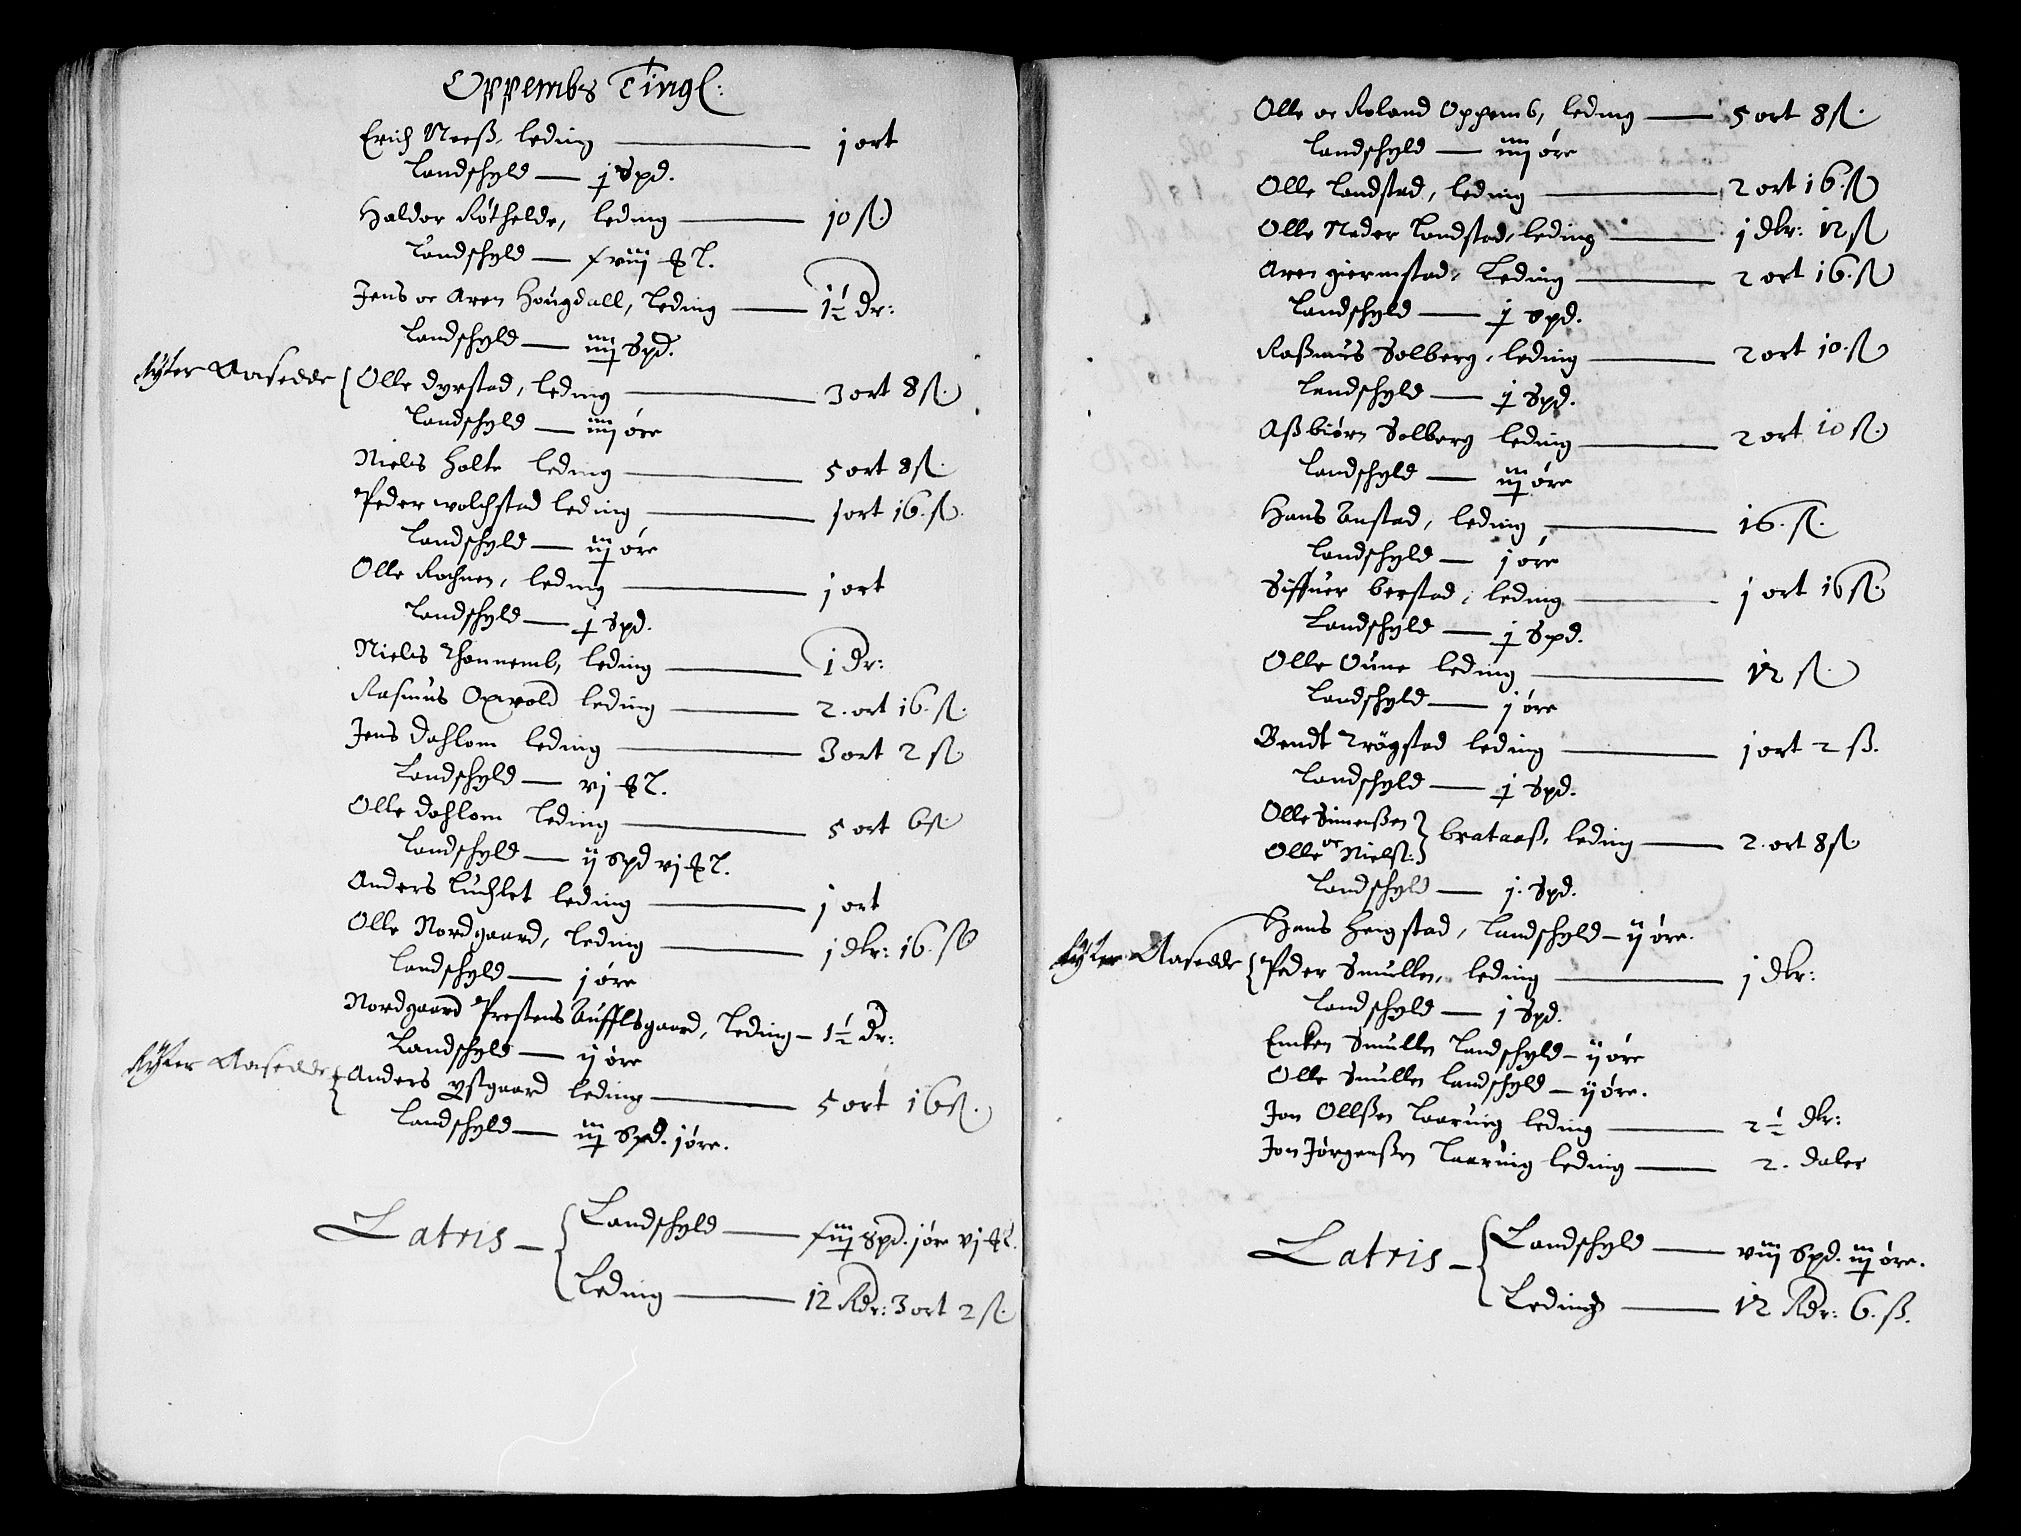 Oppembs Tingl:
Erich Neeß, leding — j ort
Landschyld — j Spd.
Haldor Röthelde, leding — jo ß
Landschyld — xviij L.
Jens oc Aren Hougdall, leding — 1½ Dr:
Landschyld — iiij Spd.
Aasedde { Olle dyrstad, leding — 3 ort 8 ß.
Landschyld — iiij öre
Niels Holte leding — 5 ort 8 ß.
Peder wolchstad leding — 1 ort 16. ß.
Landschyld — iij öre
Olle Rochnen, leding — j ort
Landschyld — j Spd.
Niels Thonnemb, leding — 1 Dr:
Rasmus Oxvold leding — 2. ort 16. ß.
Jens Dahlom leding — 3 ort 2 ß
Landschyld — vj L.
Olle dahlom leding — 5 ort 6 ß
Landschyld — ij Spd vj L.
Anders Luchlet leding — j ort
Olle Nordgaard, leding — j dlr: 16. ß
Landschyld — j öre
Nordgaard Prestens Aufflsgaard, Leding — 1½ Dr:
Landschyld — ij öre
Aasedde { Anders ystgaard leding — 5 ort 16 ß.
Landschyld — iij Spd. j öre.
Latris — { Landschyld — xiij Spd. j öre vj L.
Leding — 12 Rdr: 3 ort 2 ß.
Olle oc Roland Oppemb, leding — 5 ort 8 ß.
Landschyld — iiij öre
Olle Landstad, leding — 2 ort 16. ß
Olle Neder Landstad, leding — j dlr: 12 ß
Aren giermstad, Leding — 2 ort 16. ß
Landschyld — j spd.
Raßmus Solberg, leding — 2 ort 10. ß
Landschyld — j Spd.
Aßbiörn Solberg leding — 2 ort 10 ß.
Landschyld — iij öre
Hans Anstad, leding — 16. ß.
Landschyld — j öre
Siffuer berstad, leding — j ort 16 ß
Landschyld — j Spd.
Olle Oune leding — 12 ß.
Landschyld — j öre
Bendt Trögstad leding — j ort 2 ß.
Landschyld — j Spd.
Olle Simenßen
oc } brataaß, leding — 2. ort 8 ß
Olle Nielß:
Landschyld — j. Spd.
Hans Heigstad, Landschyld — ij öre.
Aasedde { Peder Smullen, leding — j dlr:
Landschyld — j Spd.
Encken Smullen Landschyld — ij öre
Olle Smullen Landschyld — ij öre.
Jon Ollßen Laaruig leding — 2½ dlr:
Jon Jörgenßen Laaruig leding — 2. daler
Latris — { Landschyld — viij Spd. iij öre.
Leding — 12 Rdr: 6. ß.